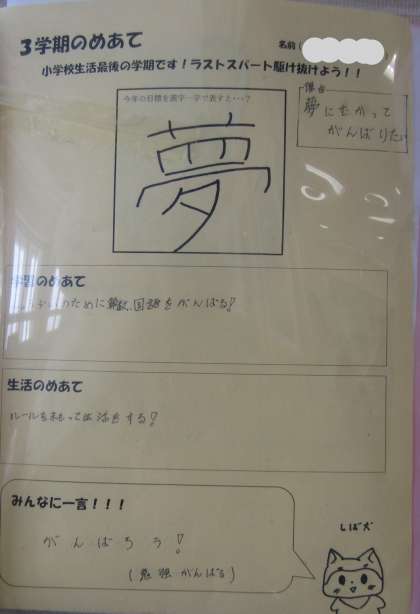 3学期のめあて
名前
小学校生活最後の学期です！ラストスパート駆け抜けよう！！
今年の目標を漢字一字で表すと・・・？
夢
理由
夢にむかって
がんばりたい
学習のめあて
のために算数、国語をがんばる!
生活のめあて
ルールをまもって生活をする!
みんなに一言！！！
がんばろう!
(勉強がんばる)
しば犬